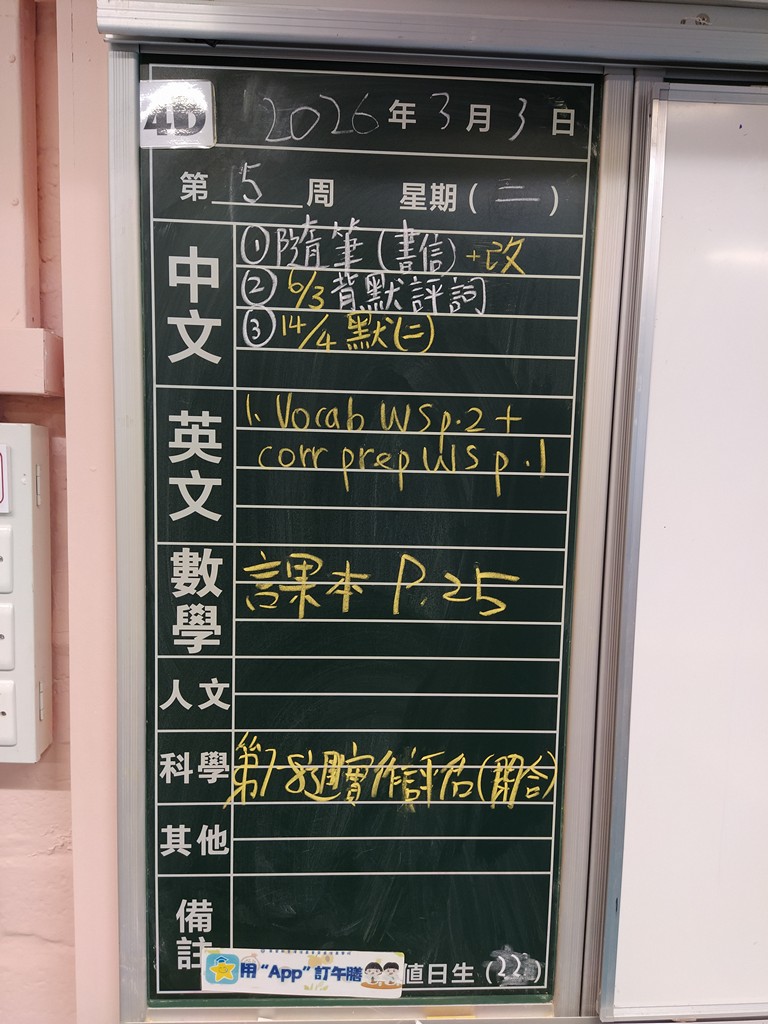 4D
2026年3月3日
第5周 星期(二)
中文
①隨筆(書信)+改
②6/3背默評詞
③14/4默(二)
英文
1. Vocab WS p.2 +
corr prep WS p.1
數學
課本 P.25
人文
科學
第7-8週實作評估(閉合)
其他
備註
用“App”訂午膳
值日生(22)